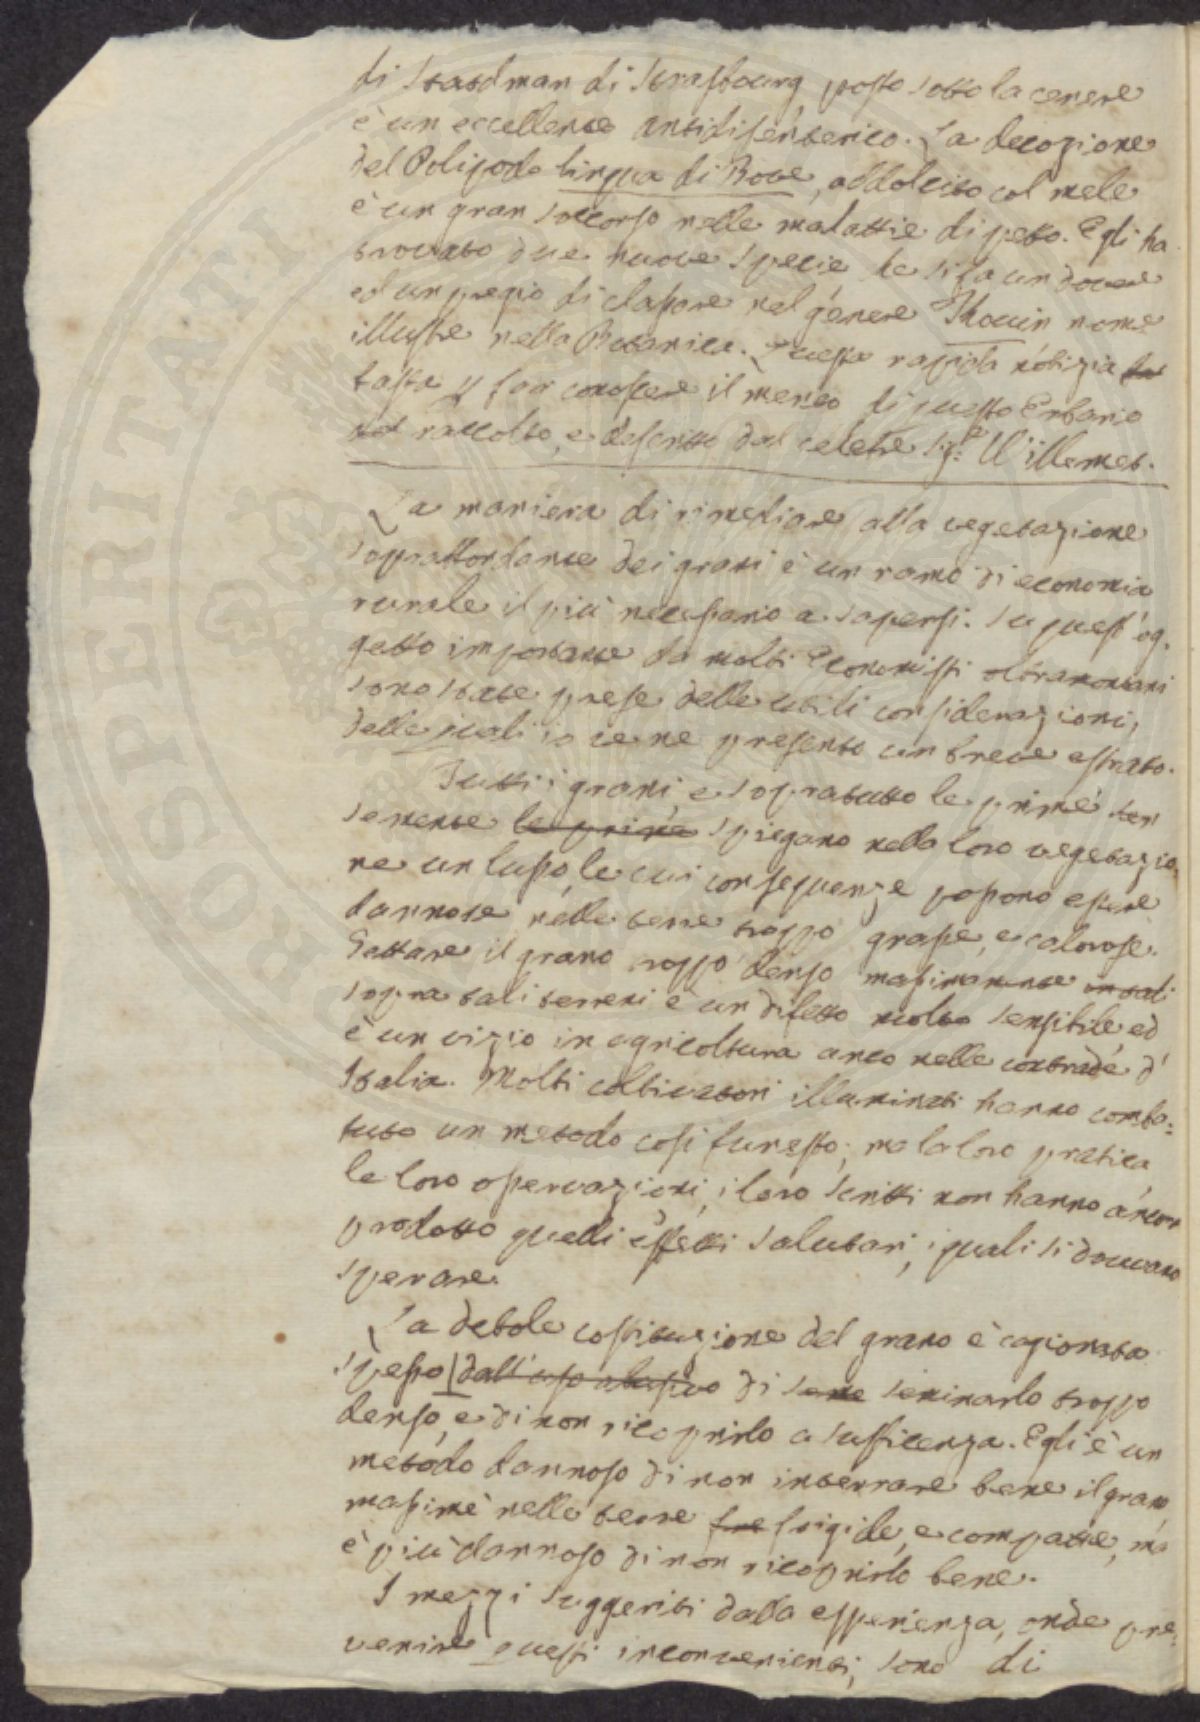 di Stardman di Strasbourg posto sotto la cenere
è un eccellente antidisenterico. La decozione
del Polipodo lingua di Bove, addolcito col mele
è un gran soccorso nelle malattie di petto. Egli ha
trovato due nuove specie che si fa un dovere
ed un pregio di classare nel génere Thouin nome
illustre nella Botanica. Questa rapida notizia
basta p far conoscere il merito di questo Erbario
raccolto, e descritto dal celebre Sigr. Willemet.
La maniera di rimediare alla vegetazione
soprabbondante dei grani è un ramo di economia
rurale il più necessario a sapersi. Su quest'og-
getto importante da molti Economisti oltramontani
sono state prese delle utili considerazioni,
delle quali io ve ne presento un breve estratto.
Tutti i grani, e sopratutto le prime
semenze le prime spiegano nella loro vegetazio-
ne un lusso, le cui conseguenze possono essere
dannose nelle terre troppo grasse, e calorose.
Gettare il grano troppo denso massimamente in tali
sopra tali terreni è un difetto molto sensibile, ed
è un vizio in agricoltura anco nelle contrade d'
Italia. Molti coltivatori illuminati hanno comba=
tuto un metodo così funesto; ma la loro pratica,
le loro osservazioni, i loro scritti non hanno ancor
prodotto quelli effetti salutari, i quali si dovevano
sperare.
La debole costituzione del grano è cagionata
spesso dall'uso abusivo di seme seminarlo troppo
denso, e di non ricoprirlo a sufficenza. Egli è un
metodo dannoso di non interrare bene il grano
massime nelle terre fre frigide, e compatte, ma
è più dannoso di non ricoprirlo bene.
I mezzi suggeriti dalla esperienza, onde pre-
venire questi inconvenienti, sono di